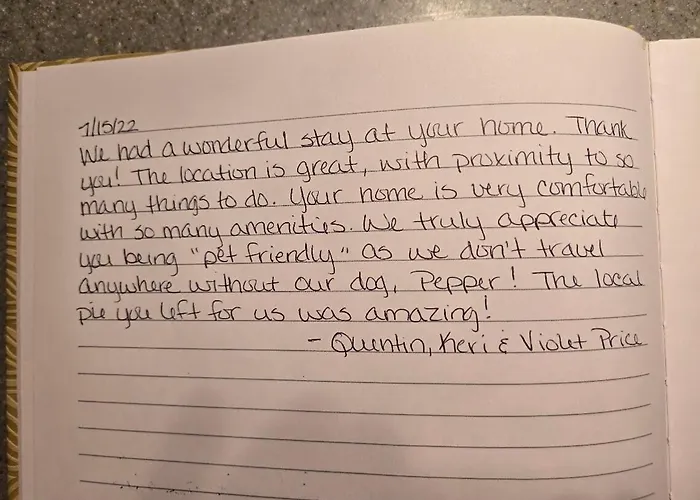 1/15/22
We had a wonderful stay at your home. Thank
you! The location is great, with proximity to so
many things to do. Your home is very comfortable
with so many amenities. We truly appreciate
you being "pet friendly" as we don't travel
anywhere without our dog, Pepper! The local
pie you left for us was amazing!
- Quentin, Keri & Violet Price